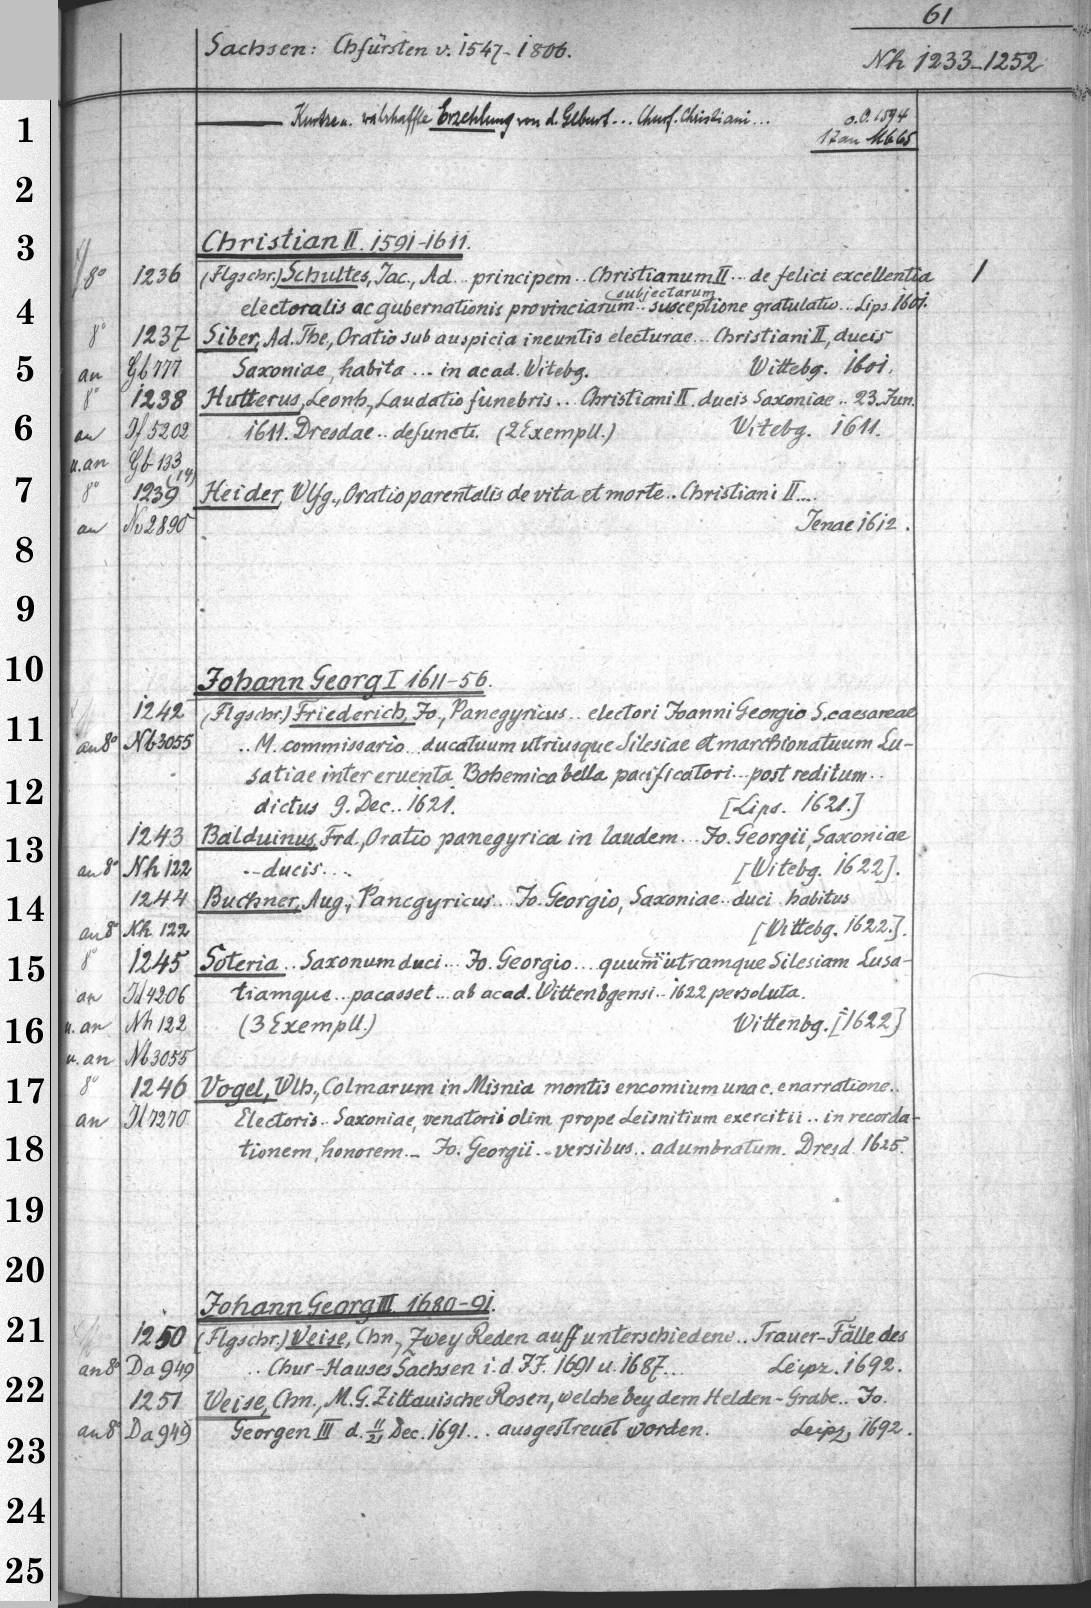 61
Sachsen: Chfürsten v. 1547-1806.
Nh 1233-1252
1
Kurtze u. warhaffte Erzehlung von d. Geburt... Churf. Christiani...
o.O. 1594
17 an
2
3
Christian II. 1591-1611.
8° 1236 (Flgschr.) Schultes, Jac., Ad... principem.. Christianum II... de felici excellentia 1
subjectarum
4
electoralis ac gubernationis provinciarum.. susceptione gratulatio.. Lips. 1601.
8° 1237 Siber, Ad. The., Oratio sub auspicia ineuntis electurae... Christiani II, ducis
5
an Gb 777 Saxoniae, habita ... in acad. Witebg. Wittebg. 1601.
8° 1238 Hutterus, Leonh., Laudatio funebris... Christiani II. ducis Saxoniae.. 23. Jun.
6
an If 5202 1611. Dresdae.. defuncti. (2 Exempll.) Witebg. 1611.
u. an Gb 133
(14)
7
8° 1239 Heider, Wlfg., Oratio parentalis de vita et morte.. Christiani II....
an No 2890 Jenae 1612.
8
9
10
Johann Georg I 1611-56.
1242 (Flgschr.) Friederich, Jo., Panegyricus.. electori Joanni Georgio S. caesareae
11
an 8° Nb 3055 .. M. commissario.. ducatuum utriusque Silesiae et marchionatuum Lu-
satiae inter eruenta Bohemica bella pacificatori... post reditum..
12
dictus 9. Dec.. 1621. [Lips. 1621.]
1243 Balduinus, Frd., Oratio panegyrica in laudem... Jo. Georgii, Saxoniae
13
an 8° Nh 122 ..ducis... [Witebg. 1622].
1244 Buchner, Aug., Pancgyricus.. Jo. Georgio, Saxoniae.. duci habitus
14
an 8° Nh 122 [Wittebg. 1622.].
8° 1245 Soteria.. Saxonum duci... Jo. Georgio... quum utramque Silesiam Lusa-
15
an Id 4206 tiamque.. pacasset... ab acad. Wittenbgensi.. 1622 persoluta.
16
u. an Nh 122 (3 Exempll.) Wittenbg. [1622]
u. an Nb 3055
17
8° 1246 Vogel, Wlh., Colmarum in Misnia montis encomium una c. enarratione..
an Id 7270 Electoris.. Saxoniae, venatorii olim prope Leisnitium exercitii.. in recorda-
18
tionem, honorem... Jo. Georgii... versibus.. adumbratum. Dresd. 1625.
19
20
Johann Georg III. 1680-91.
21
1250 (Flgschr.) Weise, Chn., Zwey Reden auff unterschiedene.. Trauer-Fälle des
an 8° Da 949 .. Chur-Hauses Sachsen i. d. JJ. 1691 u. 1687... Leipz. 1692.
22
1251 Weise, Chn., M. G. Zittauische Rosen, welche bey dem Helden-Grabe.. Jo.
an 8° Da 949 Georgen III d. 11/21 Dec. 1691... ausgestreuet worden. Leipz, 1692.
23
24
25